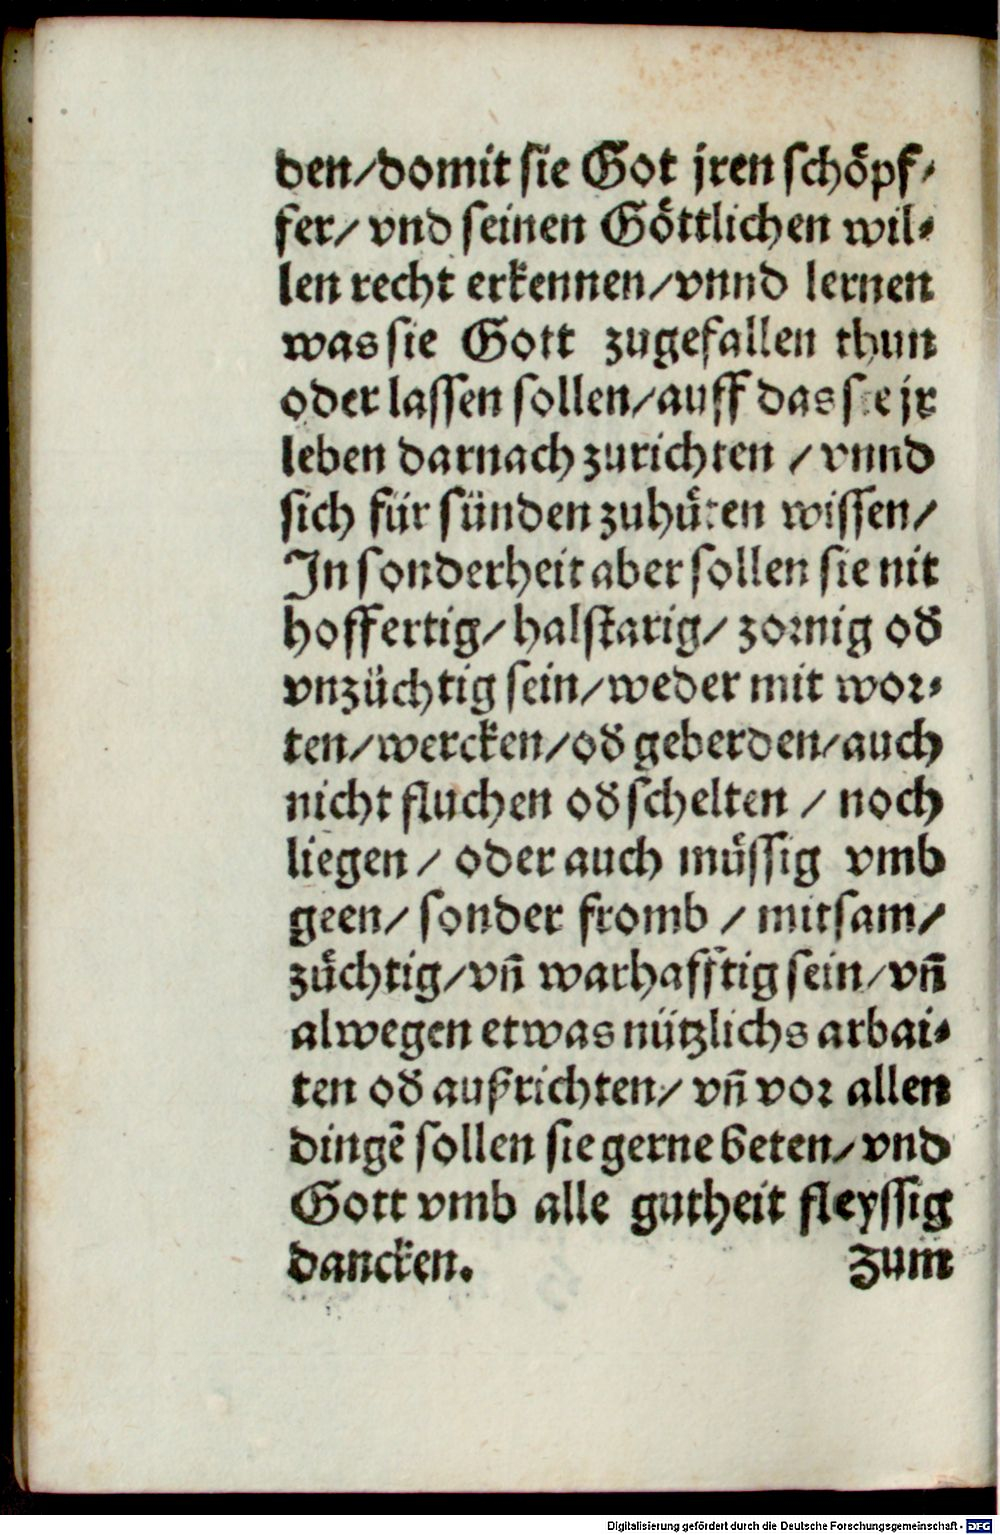 den/domit sie Got jren schöpf-
fer/ vnd seinen Göttlichen wil-
len recht erkennen/vnnd lernen
was sie Gott zugefallen thun
oder lassen sollen/auff das sie jr
leben darnach zurichten / vnnd
sich für sünden zuhüten wissen/
In sonderheit aber sollen sie nit
hoffertig/ halstarig/ zornig od̃
vnzüchtig sein/weder mit wor-
ten/wercken/od̃ geberden/auch
nicht fluchen od̃ schelten / noch
liegen / oder auch müssig vmb
geen/ sonder fromb / mitsam/
züchtig/vñ warhafftig sein/vñ
alwegen etwas nützlichs arbai-
ten od̃ außrichten/ vñ vor allen
dingẽ sollen sie gerne beten/vnd
Gott vmb alle gutheit fleyssig
dancken. Zum
Digitalisierung gefördert durch die Deutsche Forschungsgemeinschaft - DFG